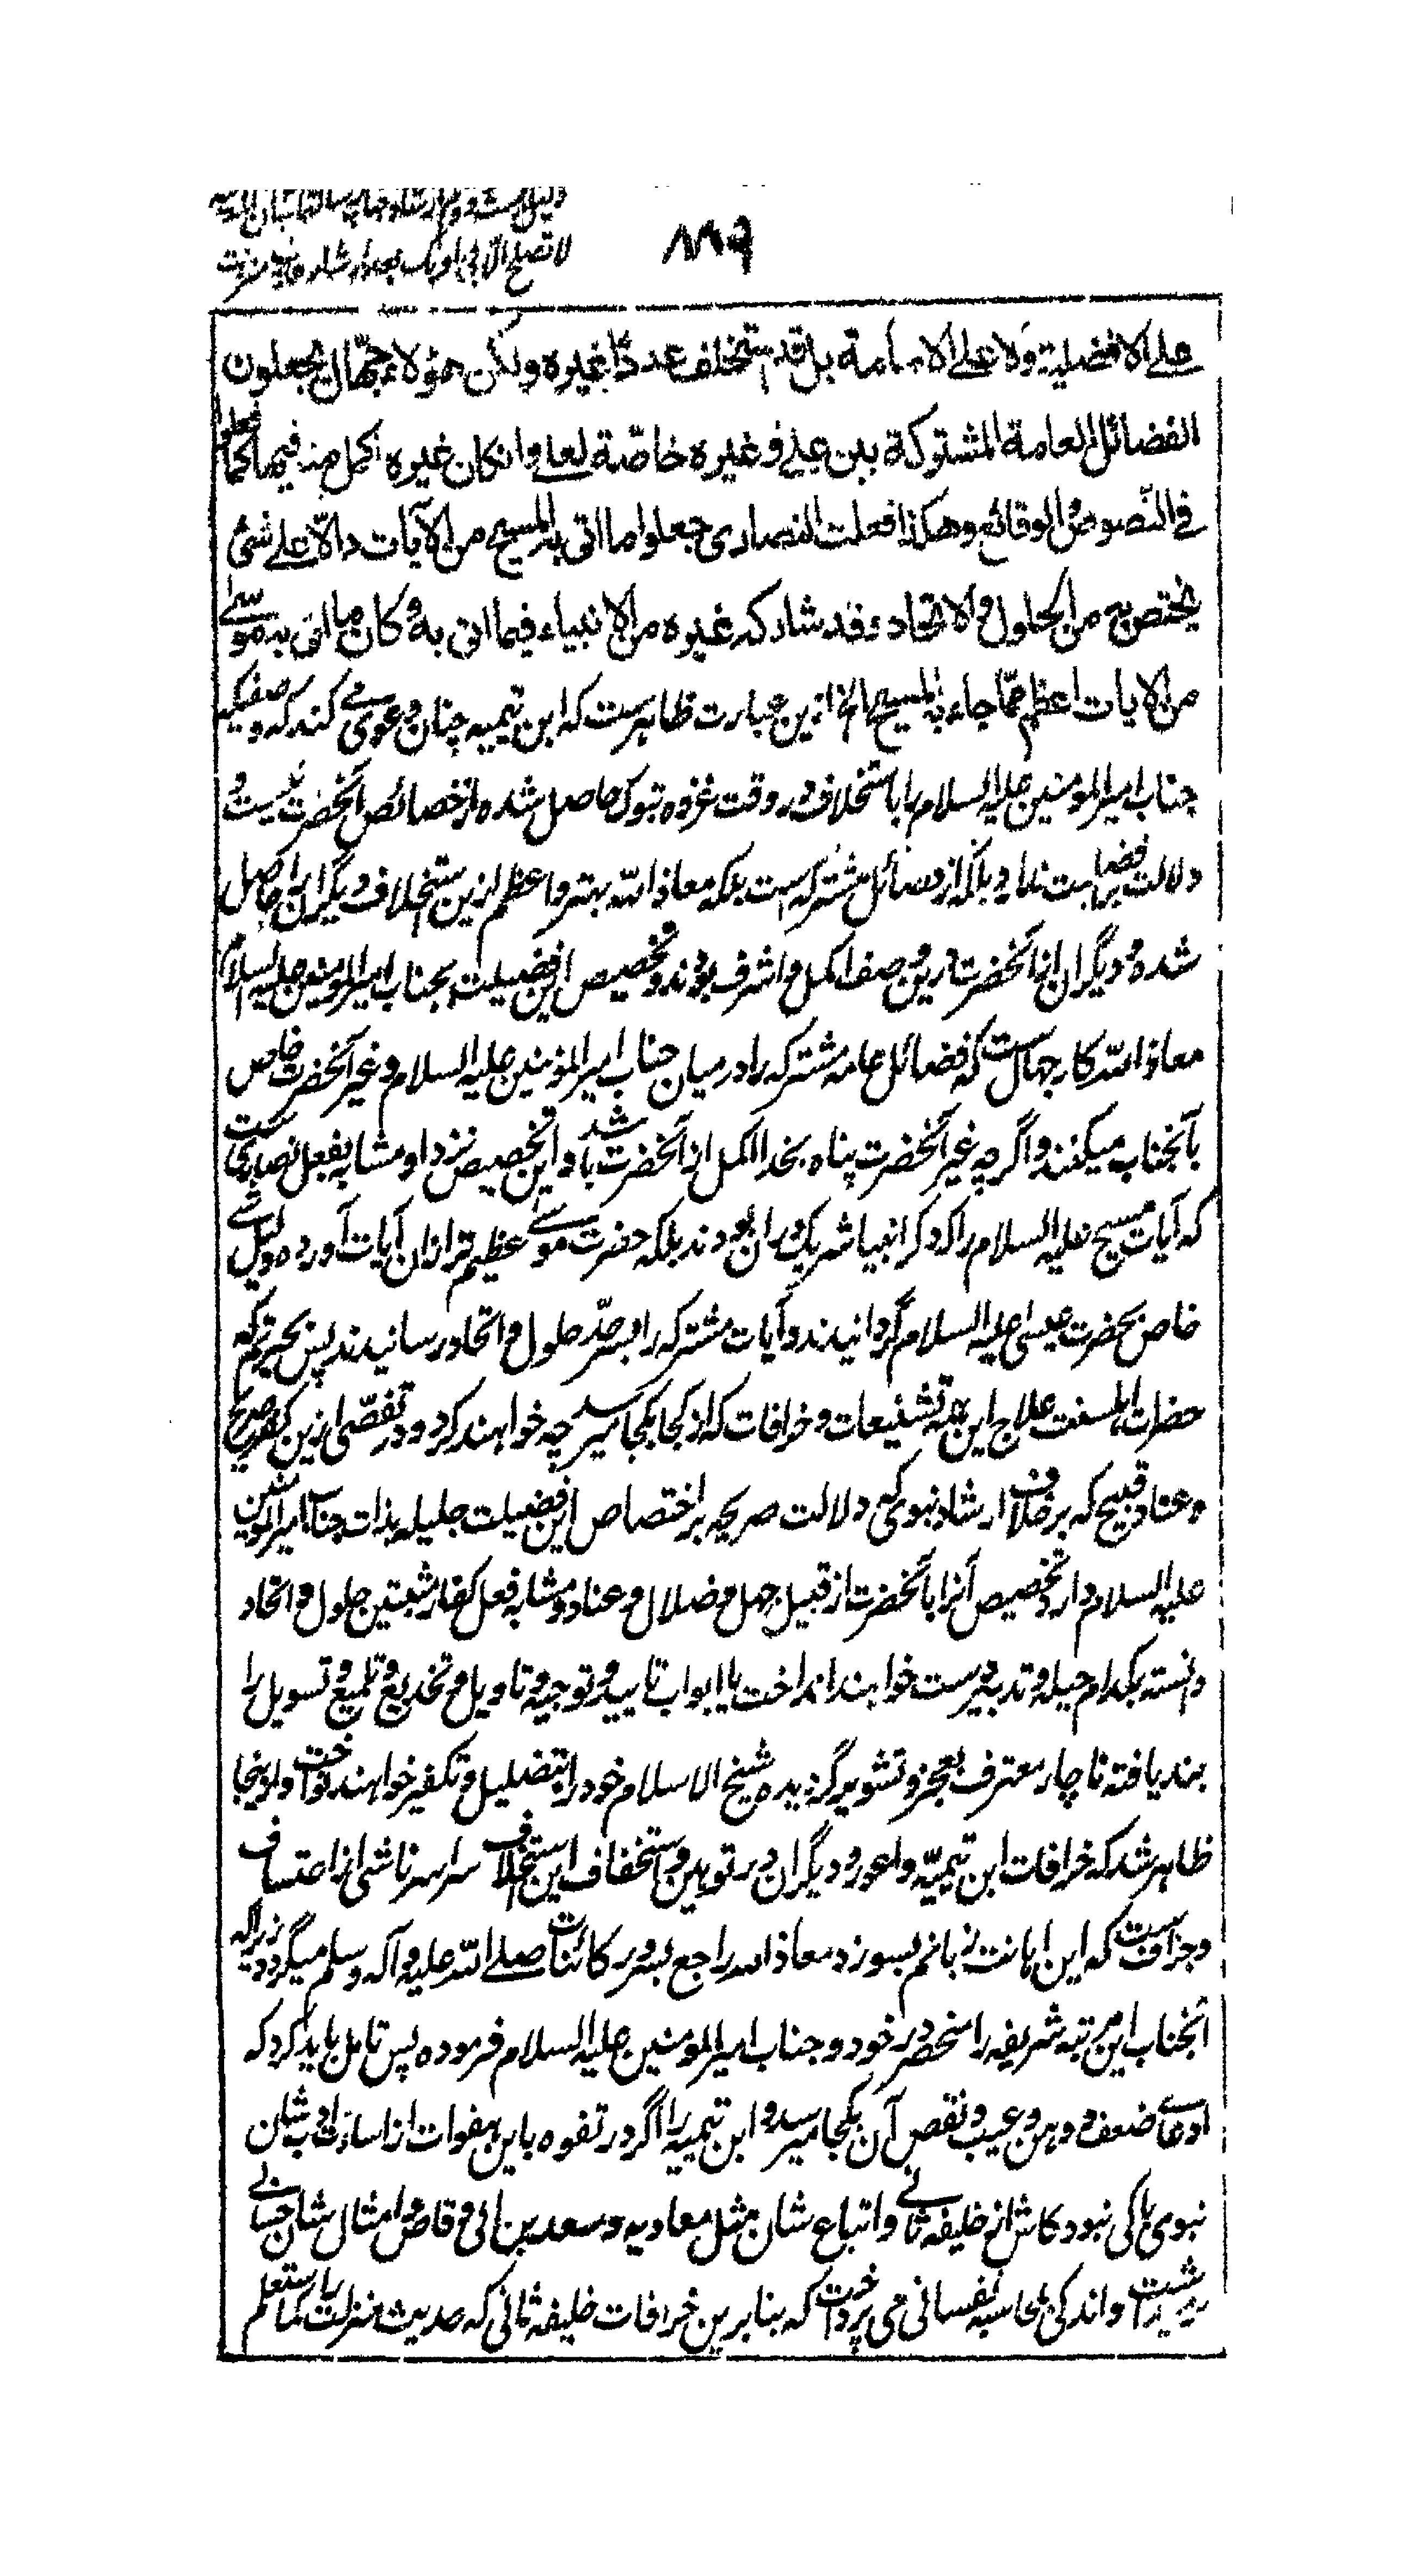 لا تصلح الا بی او بک بعد ارشاد
۸۸۹
علی الافضلیة ولا علی الامامة بل قد استخلف عددا غیره ولکن هؤلاء جهّال یجعلون
الفضائل العامة المشترکة بین علی و غیره خاصّة لعلی وان کان غیره اکمل منه فیها کما فعلوا
فی النّصوص والوقائع وهکذا فعلت النصاری جعلوا ما اتی به المسیح من الآیات دالّا علی شئ
یختص به من الحلول والاتحاد وقد شارکه غیره من الانبیاء فیما اتی به وکان ما اتی به موسی
من الآیات اعظم ممّا جاء به المسیح الخ ازین عبارت ظاهرست که ابن تیمیه چنان دعوی می کند که وصفیکه
جناب امیرالمومنین علیه السلام را باستخلاف در وقت غزوه تبوک حاصل شده از خصائص آنحضرت نیست و
دلالت بر فضیلت ندارد بلکه از فضائل مشترکه است بلکه معاذ الله بهتر و اعظم ازین استخلاف دیگران را حاصل
شده و دیگران از آنحضرت درین وصف اکمل و اشرف بودند و تخصیص این فضیلت بجناب امیرالمومنین علیه السلام
معاذ الله کار جهال ست که فضائل عامه مشترکه را درمیان جناب امیرالمومنین علیه السلام و غیر آنحضرت خاص
بآنجناب میکنند و اگرچه غیر آنحضرت پناه بخدا اکمل از آنحضرت باشد و این تخصیص نزد او مشابه بفعل نصاری ست
که آیات مسیح علیه السلام را که دگر انبیا شریک در ان بودند بلکه حضرت موسی عظیم تر ازان آیات آورده دلیل شی
خاص بحضرت عیسی علیه السلام گردانیدند و آیات مشترکه را بسرحدّ حلول و اتحاد رسانیدند پس بحیرتم که
حضرات اهلسنت علاج این همه تشنیعات و خرافات که از کجا بکجا میرسد چه خواهند کرد و در تفصّی ازین کفر صریح
و عناد قبیح که برخلاف ارشاد نبوی که دلالت صریحه بر اختصاص این فضیلت جلیله بذات جناب امیرالمومنین
علیه السلام دارد تخصیص آنرا بآنحضرت از قبیل جهل و ضلال و عناد و مشابه فعل کفار مثبتین حلول و اتحاد
دانسته بکدام حیله و تدبیر دست خواهند انداخت یا ابواب تایید و توجیه و تاویل و تخدیع و تلمیع و تسویل را
بند یافته ناچار معترف بعجز و تشویر گردیده شیخ الاسلام خود را بتضلیل و تکفیر خواهند نواخت و ازینجا
ظاهر شد که خرافات ابن تیمیّه و اعور و دیگران در توهین و استخفاف این استخلاف سراسر ناشی از اعتساف
و جزاف ست که این اهانت زبانم بسوزد معاذ الله راجع بسرور کائنات صلی الله علیه و آله و سلم میگردد زیرا که
آنجناب این مرتبه شریفه را منحصر در خود و جناب امیرالمومنین علیه السلام فرموده پس تامل باید کرد که
ادعای ضعف و وهن و عیب و نقص آن بکجا میرسد و ابن تیمیه را اگر در تفوه باین هفوات از اساءت ادب بشان
نبوی باکی نبود کاش از خلیفه ثانی و اتباع شان مثل معاویه و سعد بن ابی وقاص و امثال شان حسابی
برمیداشت و اندکی بمحاسبه نفسانی می پرداخت که بنابرین خرافات خلیفه ثانی که حدیث منزلت را کما ستعلم